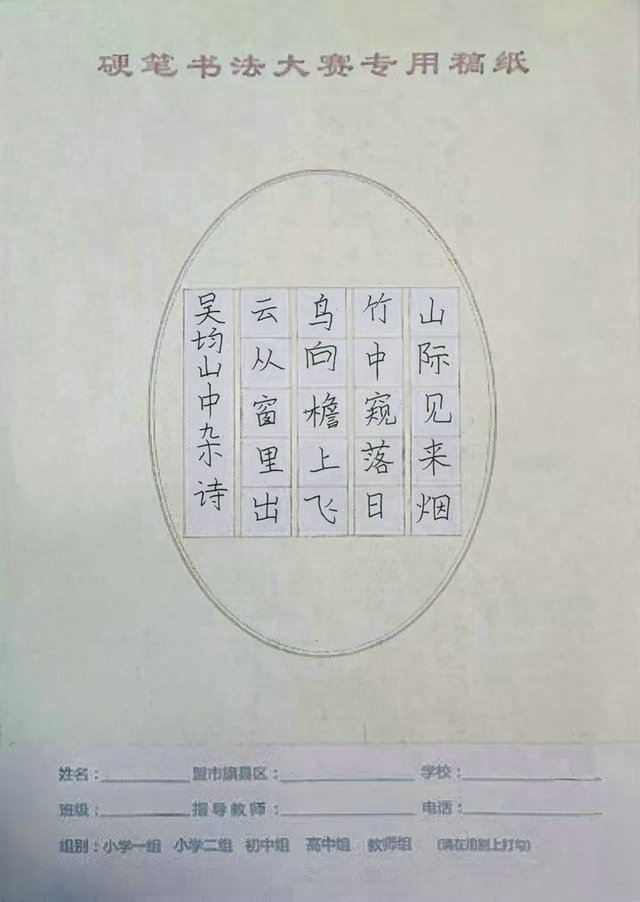 硬笔书法大赛专用稿纸
山际见来烟
竹中窥落日
鸟向檐上飞
云从窗里出
吴均山中杂诗
姓名：　盟市旗县区：　学校：
班级：　指导教师：　电话：
组别：小学一组　小学二组　初中组　高中组　教师组　（请在组别上打勾）